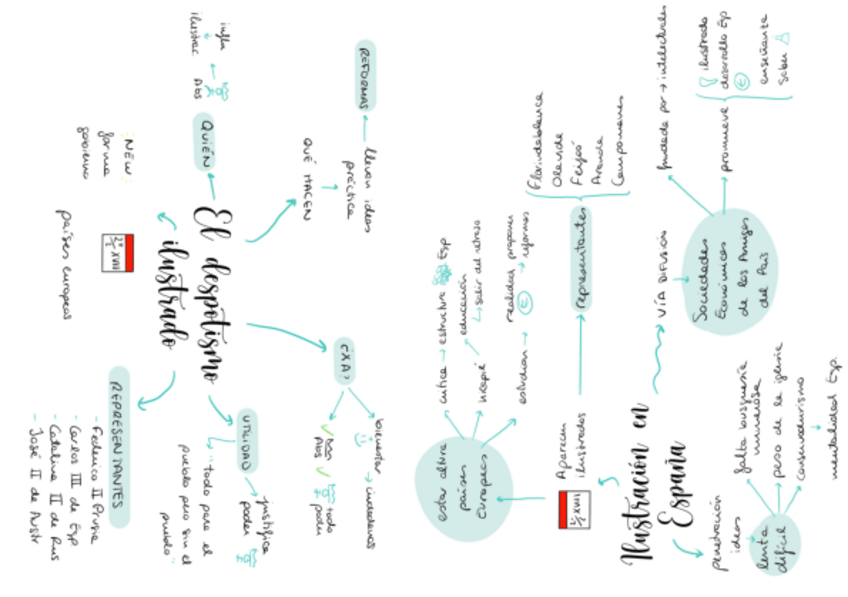 El despotismo
ilustrado
QUIÉN
Abs
infl
ilustrac.
NEW
forma
gobierno
2ª
XVIII
países europeos
QUÉ HACEN
práctica
llevan ideas
REFORMAS
¿XA?
bienestar → ciudadanos
Abs
todo
poder
UTILIDAD
justifica
poder
"todo para el
pueblo pero sin el
pueblo"
REPRESENTANTES
- Federico II Prusia
- Carlos III de Esp
- Catalina II de Rus
- José II de Austr
Ilustración en
España
penetración
ideas
lenta
difícil
falta burguesía
numerosa
peso de la iglesia
conservadurismo
mentalidad Esp.
Aparecen
ilustrados
XVIII
estar altura
países
Europeos
crítica → estructura Esp
hincapié
educación
salir del retraso
estudian →
realidad proponer
€ → reformas
representantes
Floridablanca
Olavide
Feijoó
Aranda
Campomanes
VÍA DIFUSIÓN
Sociedades
Económicas
de los Amigos
del País
fundada por → intelectuales
promueve
ilustrada
desarrollo Esp
€
enseñanza
saber